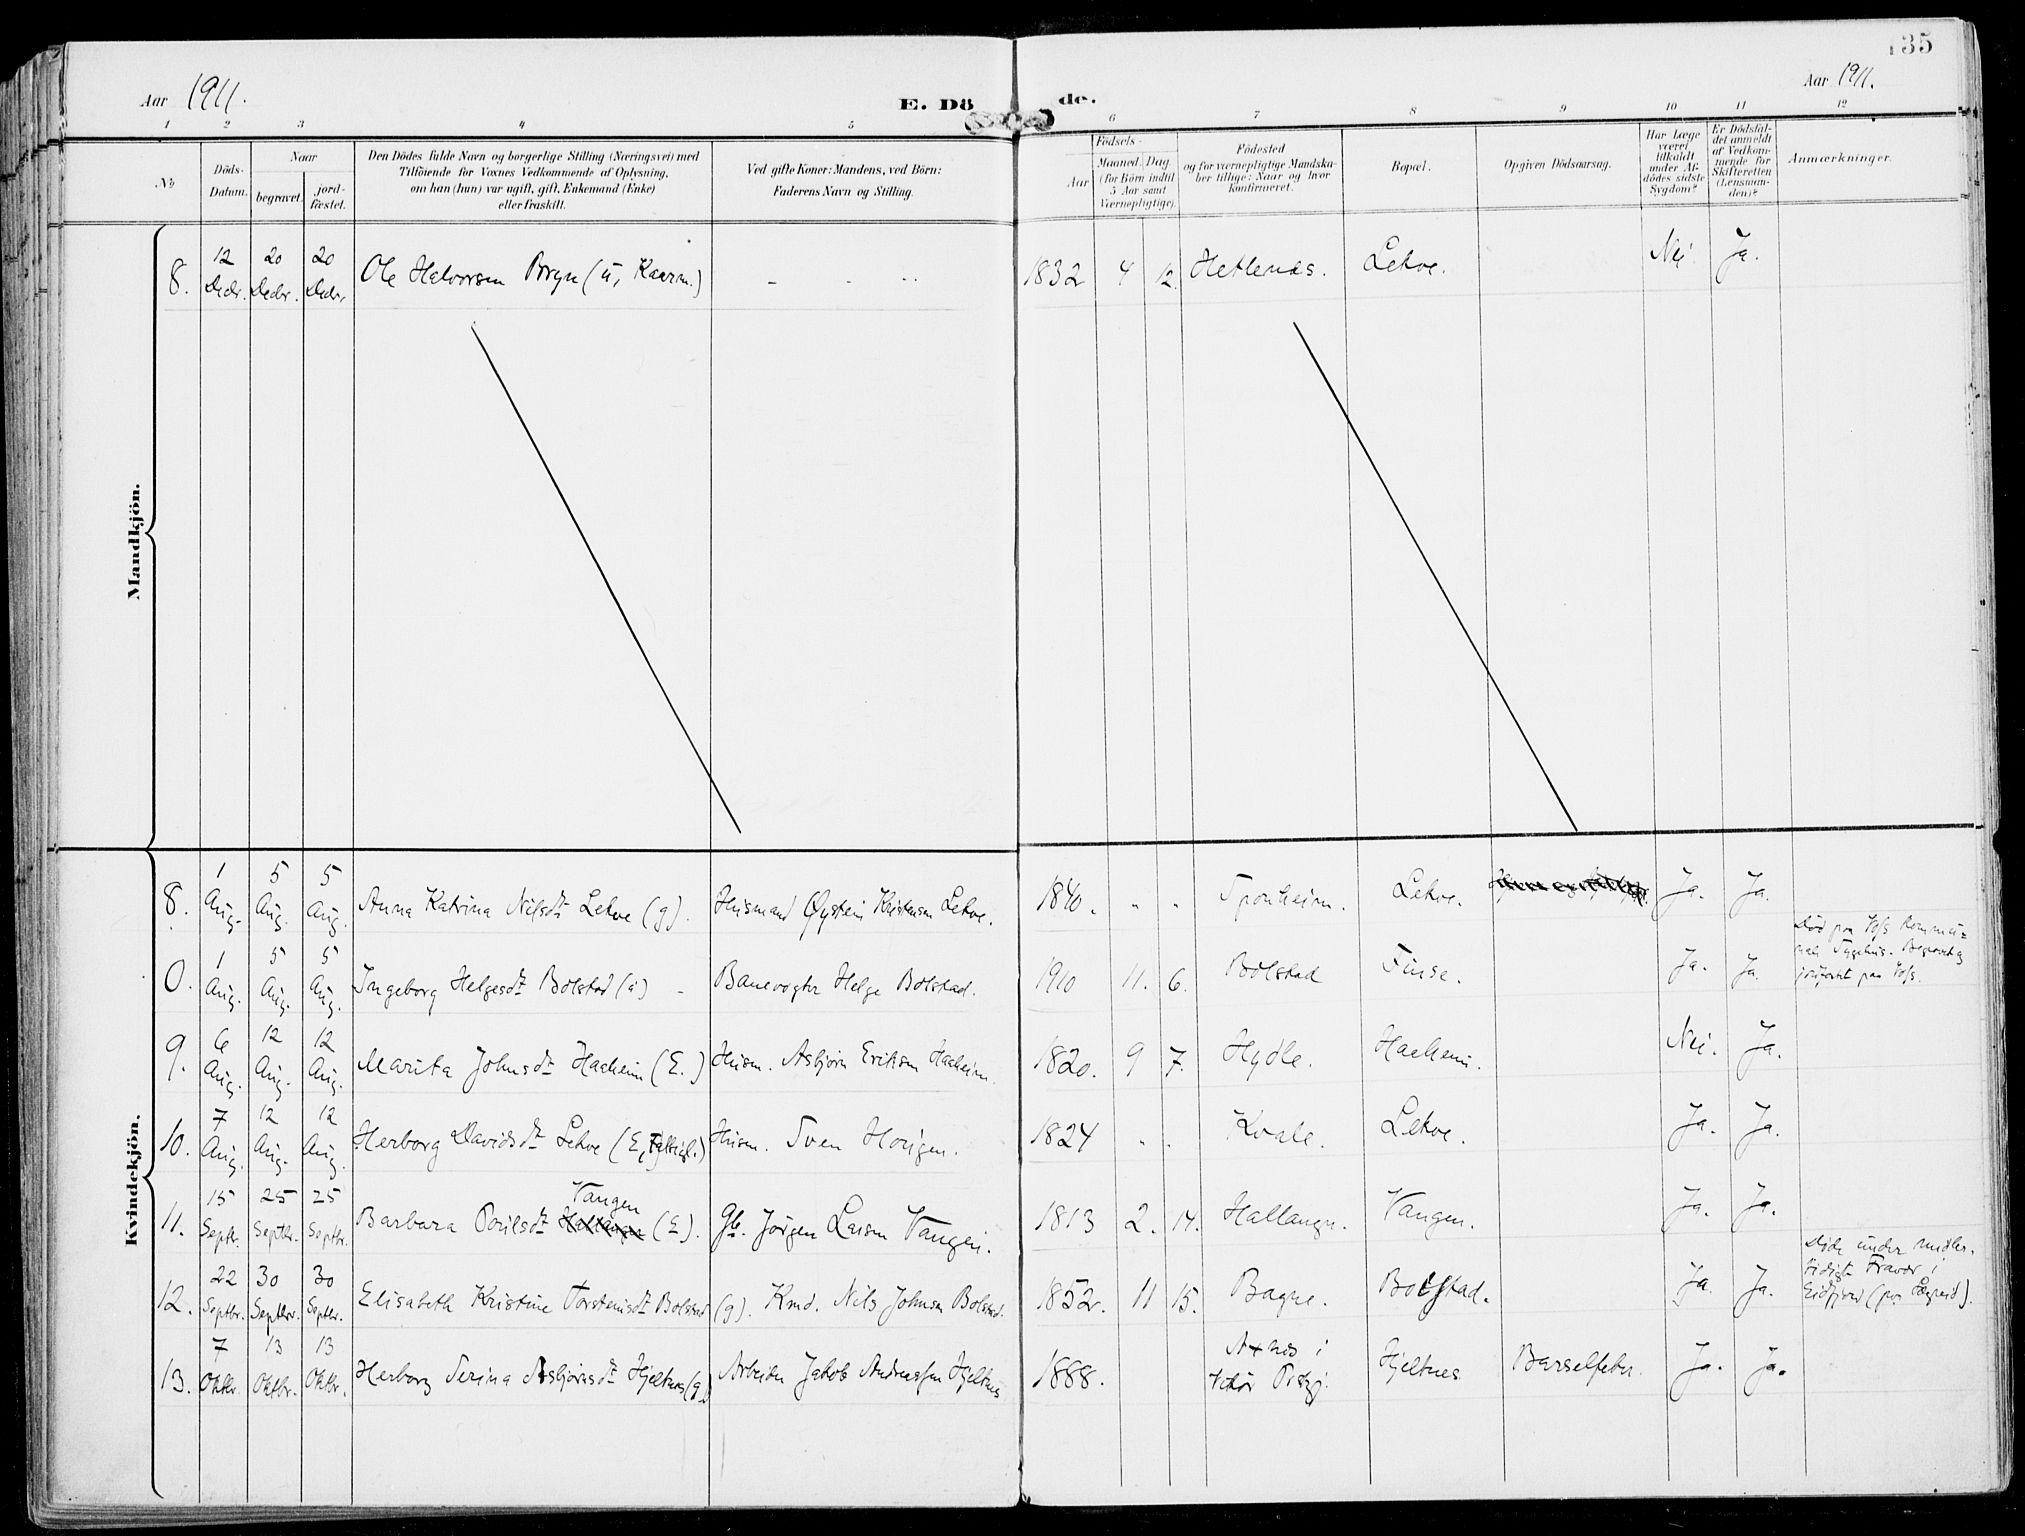 135
Aar 1911.
E. Dö de.
Aar 1911.
1 2 3 4 5 6 7 8 9 10 11 12
No
Döds-Datum.
Naar
begravet.
jord-fæstet.
Den Dödes fulde Navn og borgerlige Stilling (Næringsvei) med
Tilföiende for Voxnes Vedkommende af Oplysning,
om han (hun) var ugift, gift, Enkemand (Enke)
eller fraskilt.
Ved gifte Koner: Mandens, ved Börn:
Faderens Navn og Stilling.
Födsels-
Aar
Maaned. Dag.
(for Börn indtil
5 Aar samt
Værnepligtige).
Födested
og for værnepligtige Mandska-
ber tillige: Naar og hvor
konfirmeret.
Bopæl.
Opgiven Dödsaarsag.
Har Læge
været
tilkaldt
under Af-
dödes sidste
Sygdom?
Er Dödsfal-
det anmeldt
af Vedkom-
mende for
Skifteretten
(Lensman-
den)?
Anmærkninger.
Mandkjön.
8. 12 Decbr. 20 Decbr. 20 Decbr. Ole Halvorsen Bryn (u, Kaarm.) - - - 1832 4 12. Hetlenæs. Lekve. Nei Ja.
Kvindekjön.
8. 1 Aug. 5 Aug. 5 Aug. Anna Katrina Nilsdt Lekve (g). Husmand Øystein Kristensen Lekve. 1840. " " Sponheim. Lekve. Ja. Ja.
0. 1 Aug. 5 Aug. 5 Aug. Ingeborg Helgesdt Bolstad (u) - Banevogter Helge Bolstad. 1910 11. 6. Bolstad Finse. Ja. Ja. Död paa Voss Kommu=
nale Sygehus. Begravet og
jordfæstet paa Voss.
9. 6 Aug. 12 Aug. 12 Aug. Marita Johnsdt Haaheim (E.) Husm. Asbjørn Eriksen Haaheim. 1820. 9 7. Hydle. Haaheim. Nei. Ja.
10. 7 Aug. 12 Aug. 12 Aug. Herborg Davidsdt Lekve (E, Fattigl.) Husm. Sven Horgen. 1824 " " Kvale. Lekve. Ja. Ja.
11. 15 Septbr. 25 Septbr. 25 Septbr. Barbara Poulsdt Hallanger Vangen (E). Gb. Jørgen Larsen Vangen. 1813 2. 14. Hallangr. Vangen. Ja. Ja.
12. 22 Septbr. 30 Septbr. 30 Septbr. Elisabeth Kristine Torsteinsdt Bolstad (g). Kmd. Nils Johnsen Bolstad. 1852. 11 15. Bagne. Bolstad. Ja. Ja. Døde under midler-
tidigt Fravær i
Eidfjord (paa Lægreid).
13. 7 Oktbr. 13 Oktbr. 13 Oktbr. Herborg Serina Asbjørnsdt Hjeltnes (g.) Arbeider Jakob Andreassen Hjeltnes 1888. Axnes i
Vikør Prstgj. Hjeltnes Barselfeber. Ja. Ja.